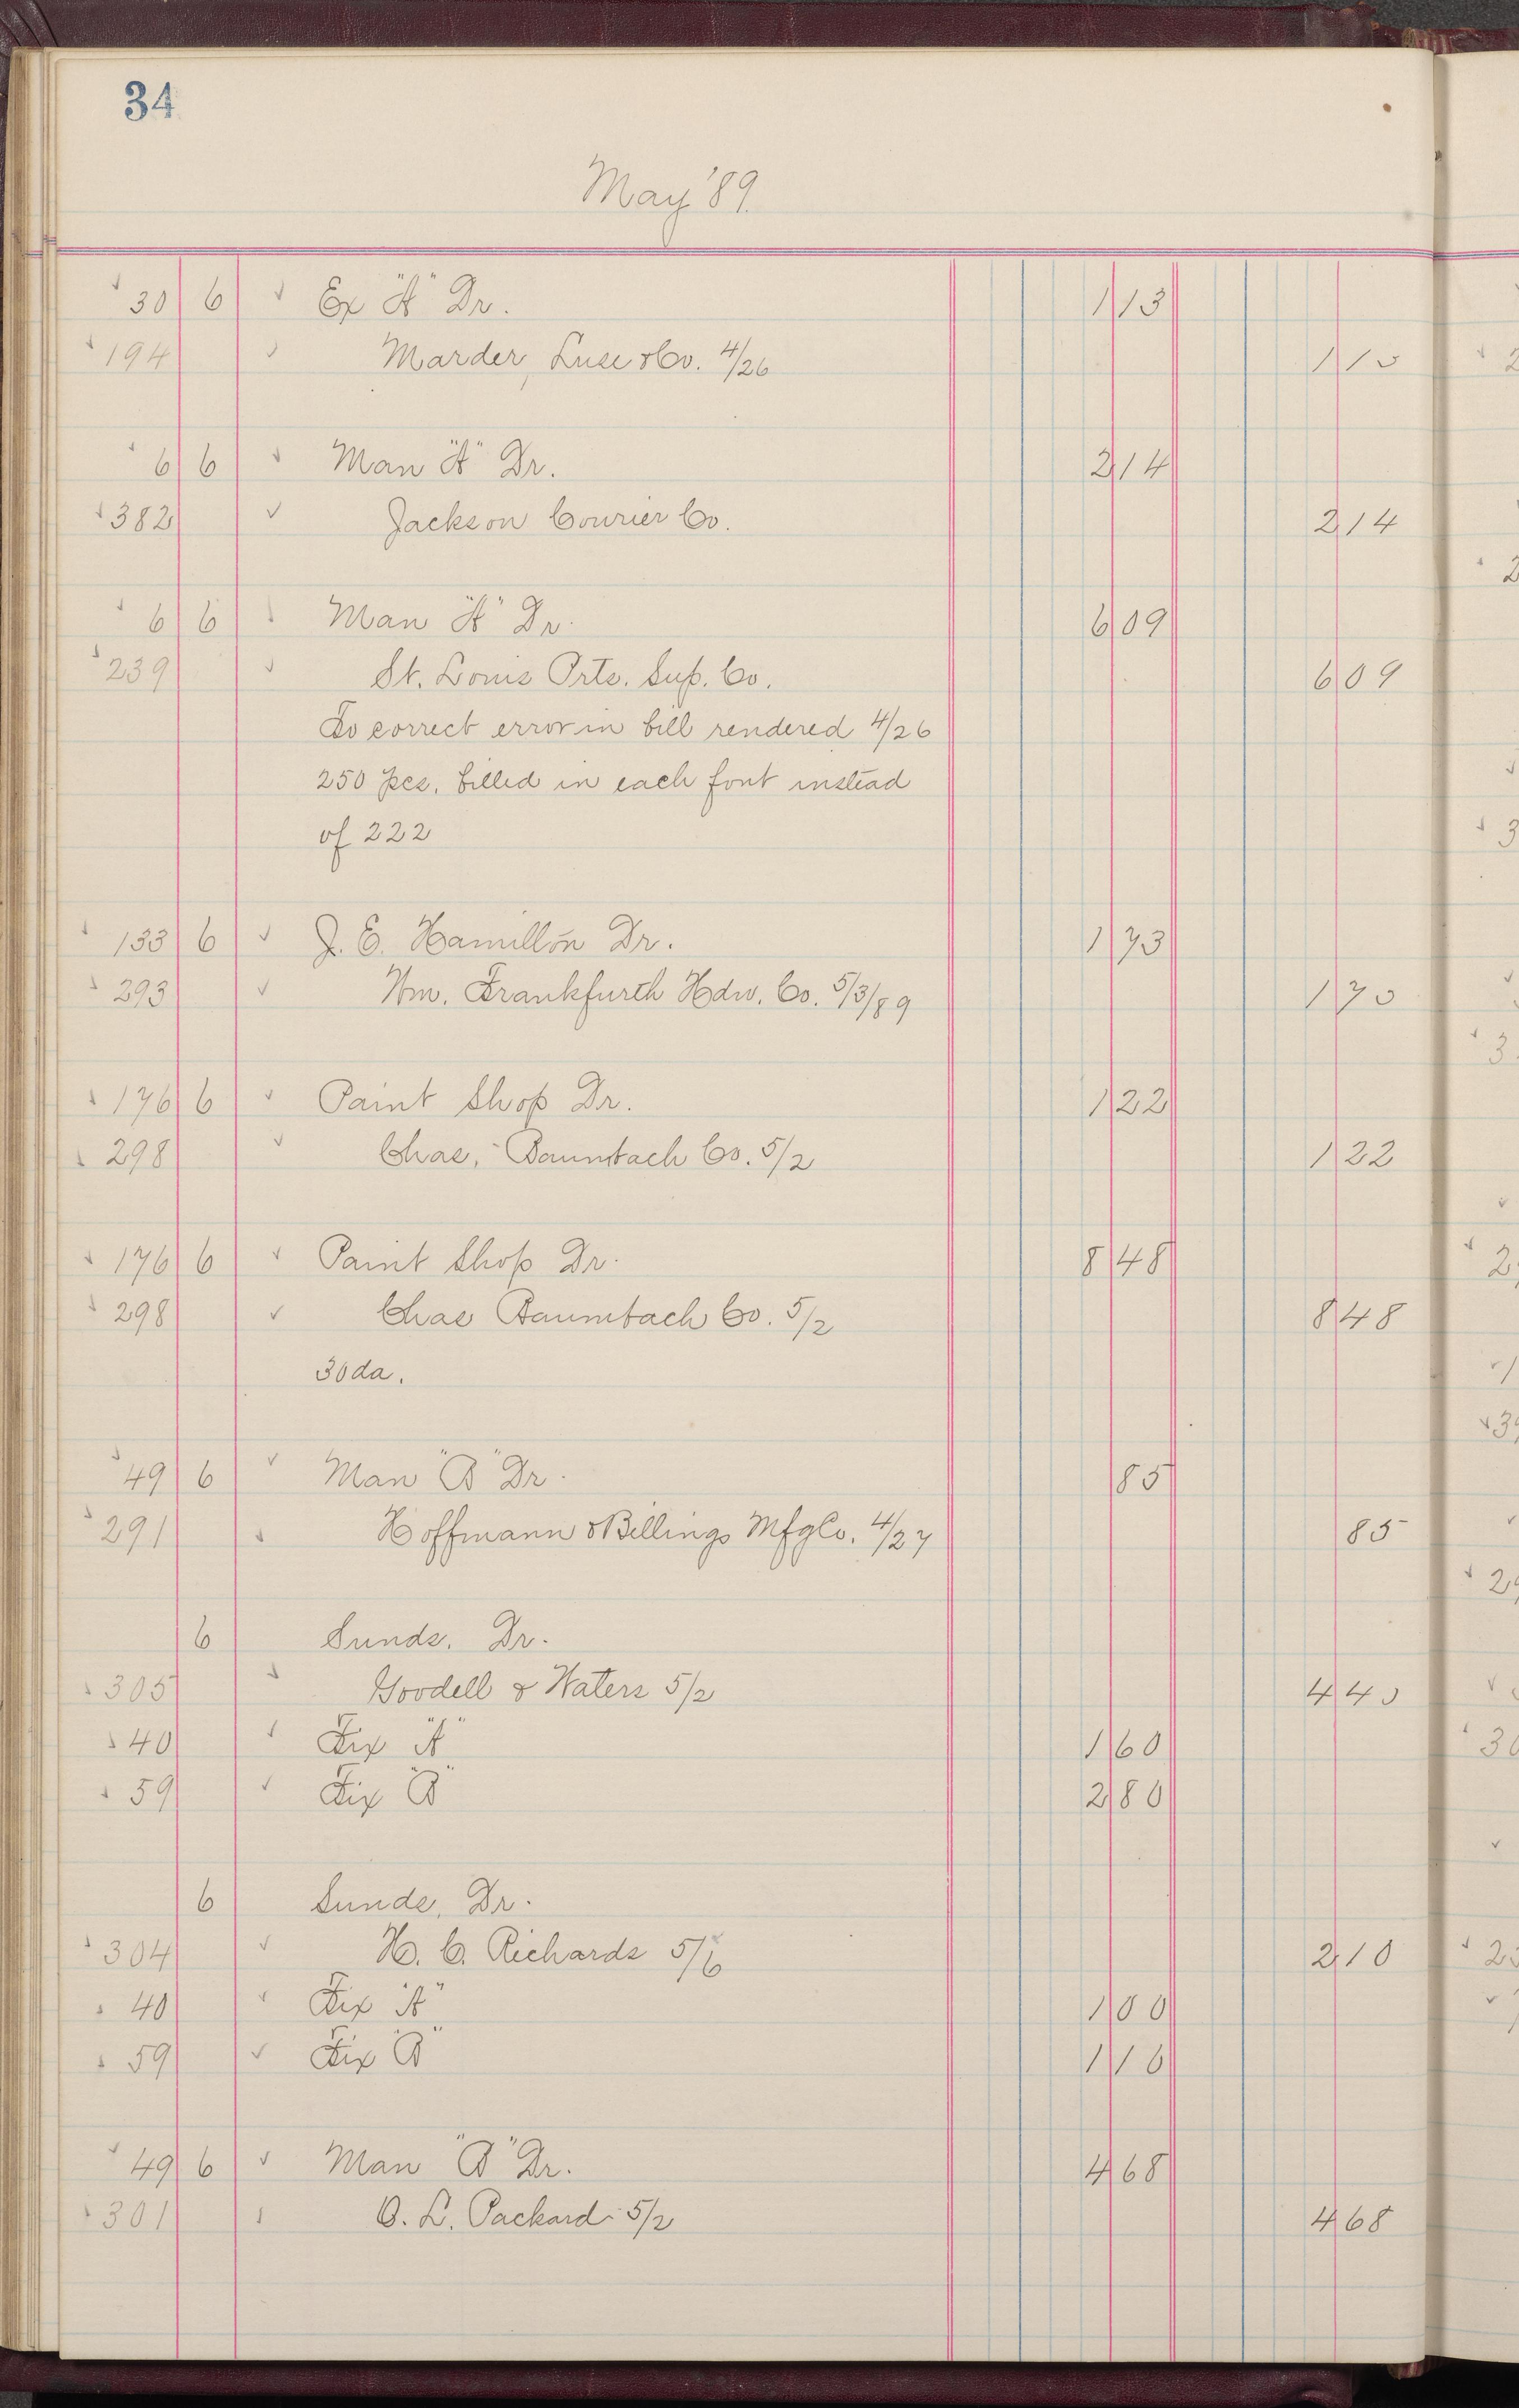 34
May '89.
30 6 Ex "A" Dr. 1 13
194 Marder, Luse & Co. 4/26 1 13
6 6 Man "A" Dr. 2 14
382 Jackson Courier Co. 2 14
6 6 Man "A" Dr. 6 09
239 St. Louis Prts. Sup. Co. 6 09
To correct error in bill rendered 4/26
250 pcs. billed in each font instead
of 222
133 6 J. E. Hamilton Dr. 1 73
293 Wm. Frankfurth Hdw. Co. 5/3/89 1 73
176 6 Paint Shop Dr. 1 22
298 Chas. Baumbach Co. 5/2 1 22
176 6 Paint Shop Dr. 8 48
298 Chas Baumbach Co. 5/2 8 48
30 da.
49 6 Man "B" Dr. 85
291 Hoffmann & Billings Mfg Co. 4/27 85
6 Sunds. Dr.
305 Goodell & Waters 5/2 4 40
40 Fix "A" 1 60
59 Fix "B" 2 80
6 Sunds. Dr.
304 H. C. Richards 5/6 2 10
40 Fix "A" 1 00
59 Fix "B" 1 10
49 6 Man "B" Dr. 4 68
301 O. L. Packard 5/2 4 68